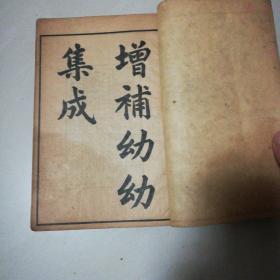 增補幼幼
集成